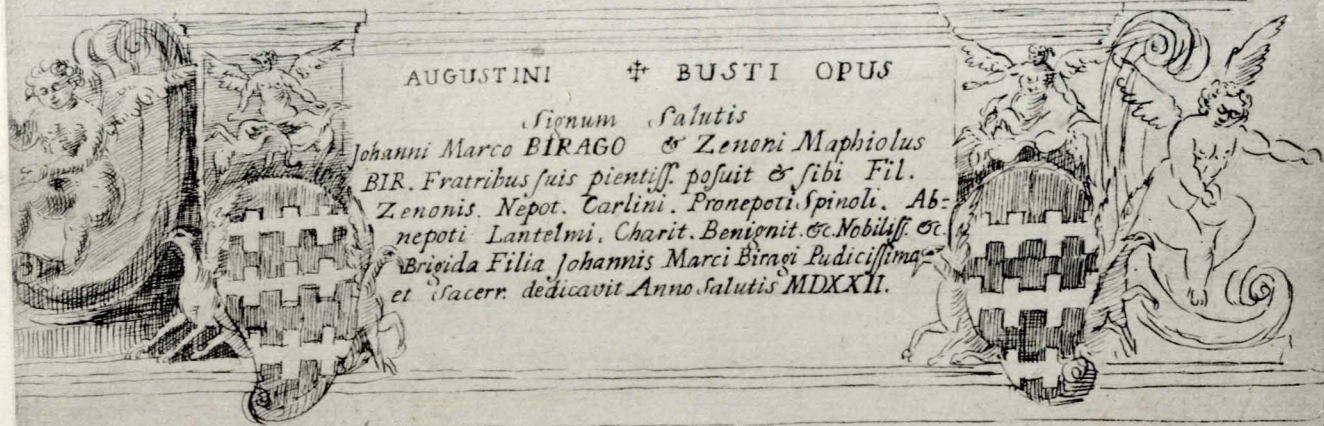 AUGUSTINI ☩ BUSTI OPUS
Signum Salutis
Johanni Marco BIRAGO & Zenoni Maphiolus
BIR. Fratribus suis pientiss. posuit & sibi Fil.
Zenonis. Nepot. Carlini. Pronepoti Spinoli. Ab=
nepoti Lantelmi. Charit. Benignit. &c. Nobiliss. &c.
Brigida Filia Johannis Marci Biragi Pudicissima
et Sacerr. dedicavit Anno Salutis MDXXII.